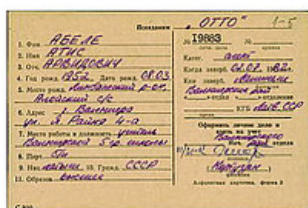 Псевдоним „ОТТО" 1-5
1. Фам. АБЕЛЕ
2. Имя АТИС
3. Отч. АРВИДОВИЧ
4. Год рожд. 1952 Дата рожд. 08.03.
5. Место рожд. р-он,
с/с
6. Адрес г. Валмиера
ул. Я. Райня 4-а
7. Место работы и должность учитель
Валмиерской 5 ср. школы
8. Парт. б/п
9. Нац. латыш 10. Гражд. СССР
11. Образов. высшее
№ 19883
Катег. агент
Когда заверб. 1982.
Кем заверб.
КГБ Латв. ССР
Оформить личное дело и
взять на учет
Нач. отдела
Алфавитная карточка, форма 3